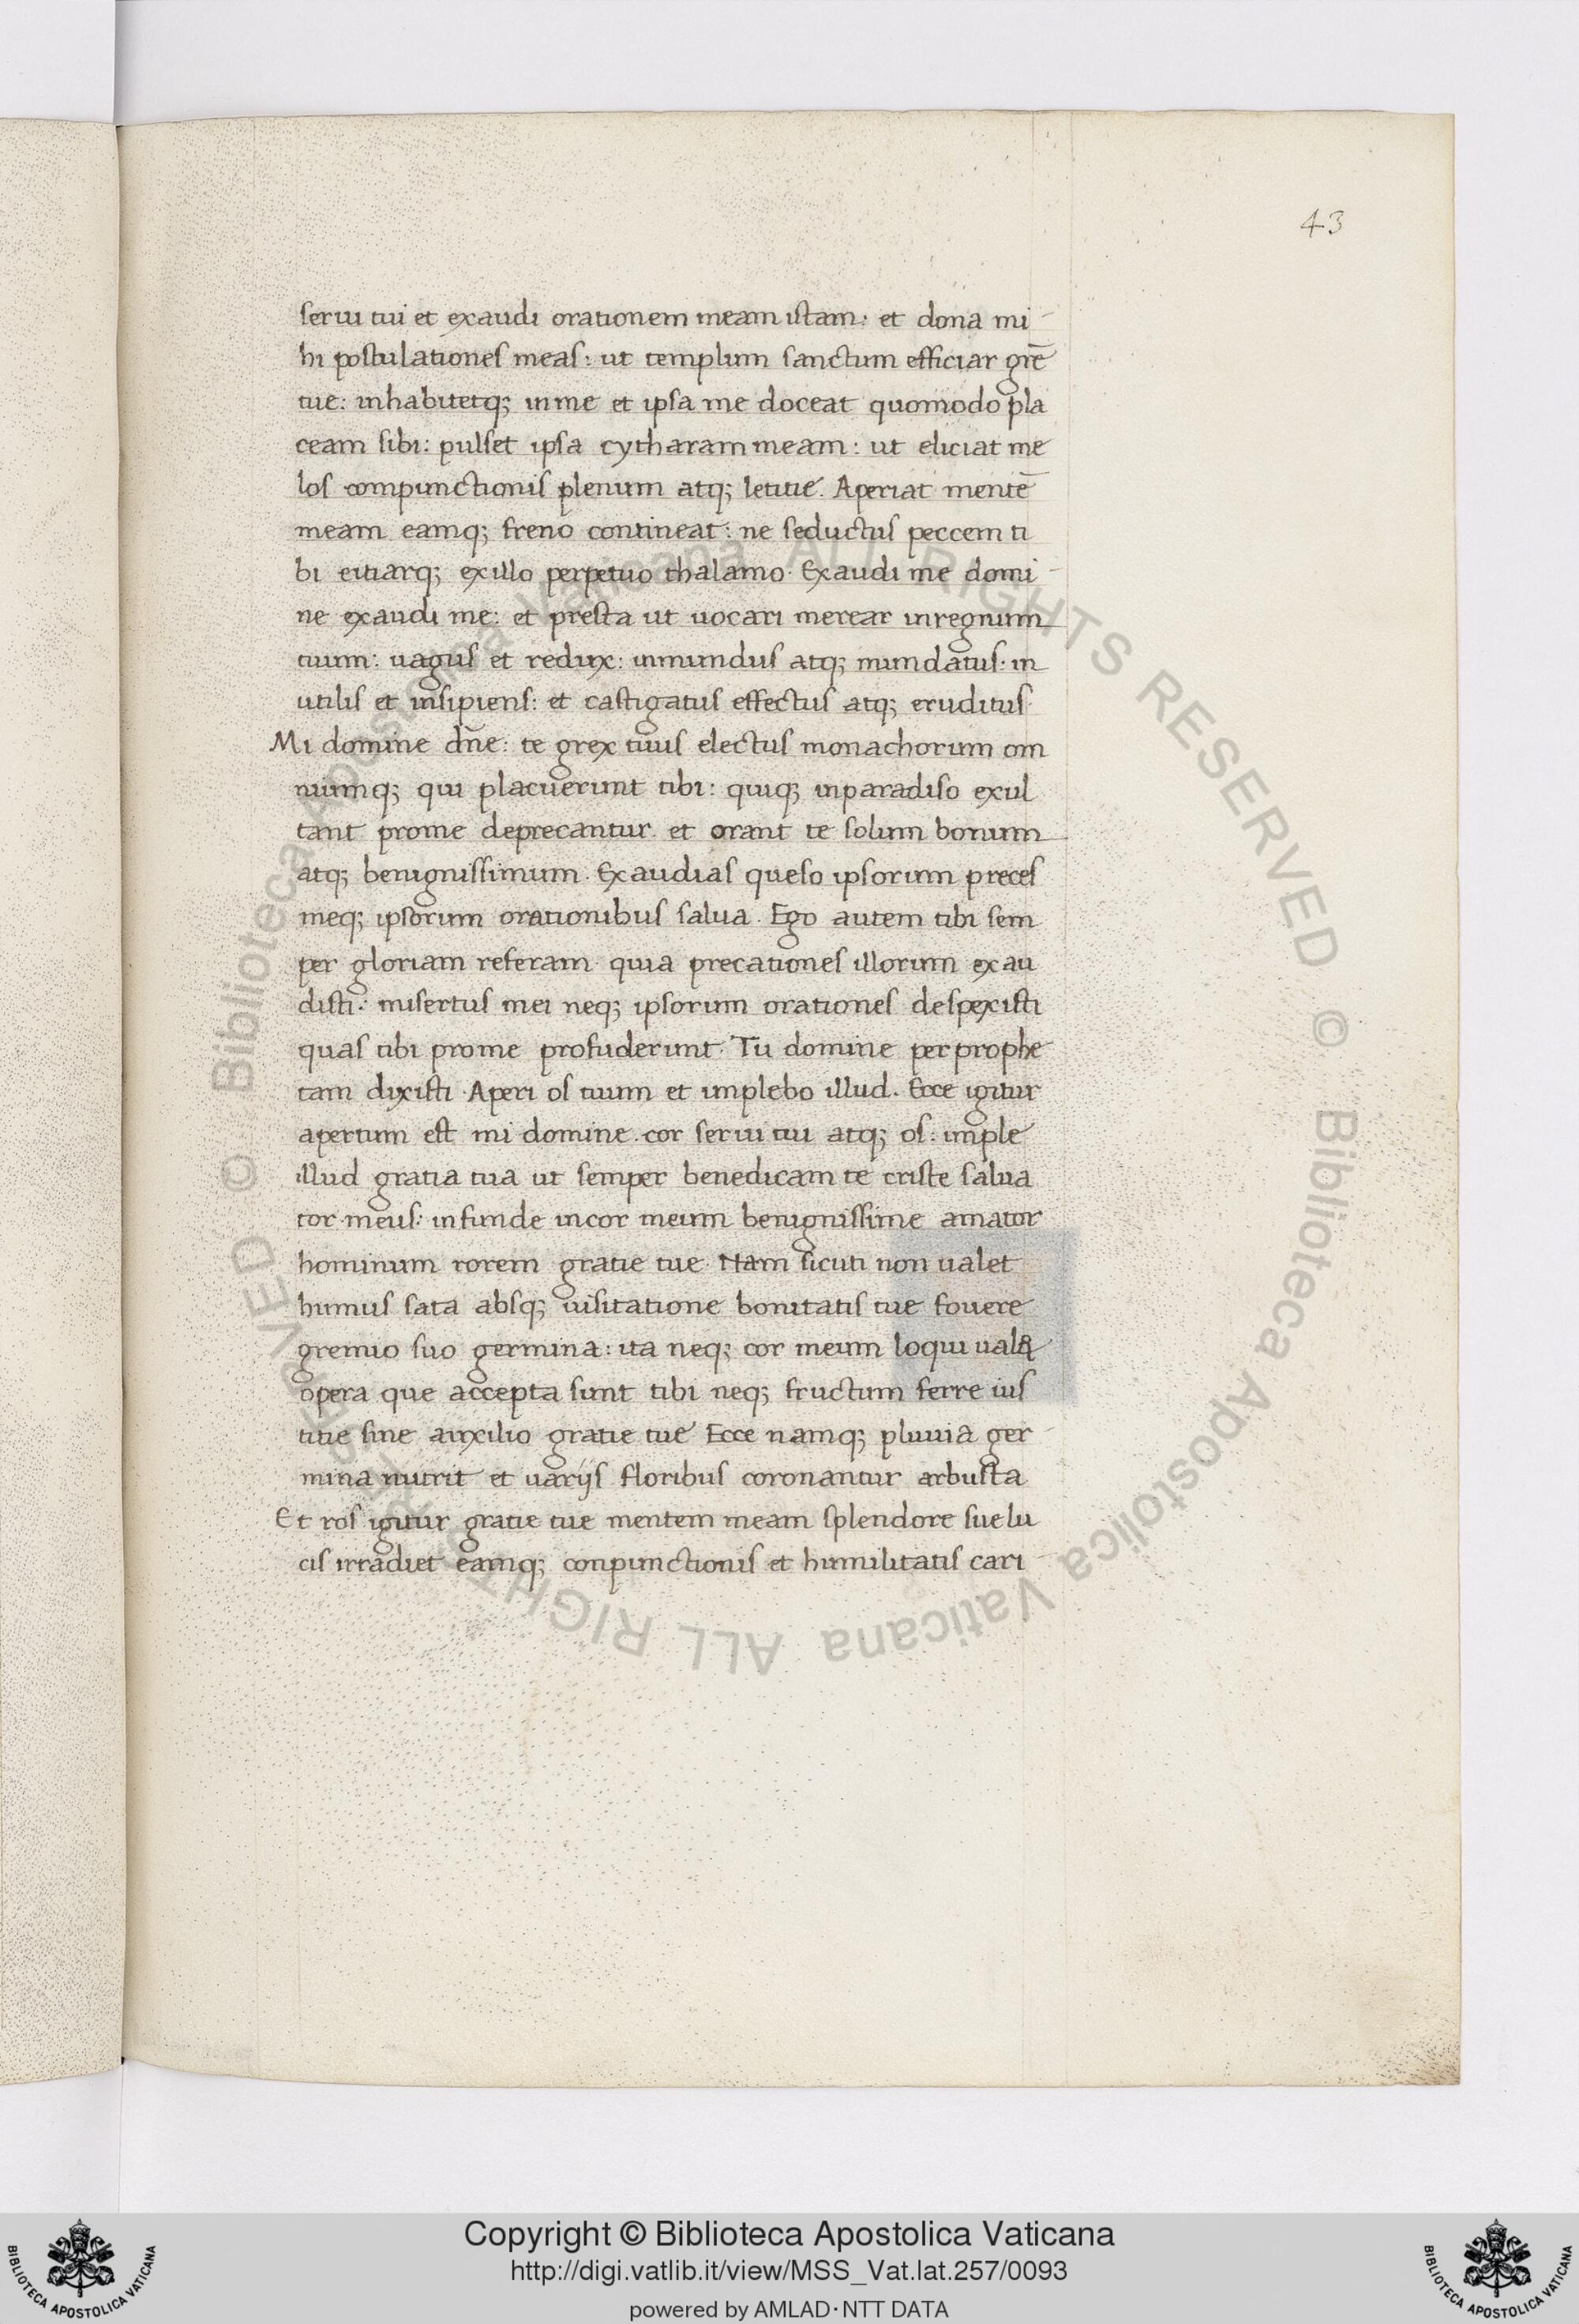 43
serui tui et exaudi orationem meam istam: et dona mi-
hi postulationes meas: ut templum sanctum efficiar grē
tue: inhabitetq; in me et ipsa me doceat quomodo pla
ceam sibi: pulset ipsa cytharam meam: ut eliciat me
los compunctionis plenum atq; letitie. Aperiat mentē
meam eamq; freno contineat: ne seductus peccem ti
bi eitiarq; ex illo perpetuo thalamo. Exaudi me domi-
ne exaudi me: et presta ut uocari merear in regnum
tuum: uagus et redux: inmundus atq; mundatus: in
utilis et insipiens: et castigatus effectus atq; eruditus.
Mi domine dñe: te grex tuus electus monachorum om
niumq; qui placuerunt tibi: quiq; in paradiso exul
tant pro me deprecantur. et orant te solum bonum
atq; benignissimum. Exaudias queso ipsorum preces
meq; ipsorum orationibus salua. Ego autem tibi sem
per gloriam referam. quia precationes illorum exau
disti: misertus mei neq; ipsorum orationes despexisti
quas tibi pro me profuderunt. Tu domine per prophe
tam dixisti. Aperi os tuum et implebo illud. Ecce igitur
apertum est mi domine. cor serui tui atq; os: imple
illud gratia tua ut semper benedicam te criste salua
tor meus: infunde in cor meum benignissime amator
hominum rorem gratie tue. Nam sicuti non ualet
humus sata absq; uisitatione bonitatis tue fouere
gremio suo germina: ita neq; cor meum loqui ualet
opera que accepta sunt tibi neq; fructum ferre ius
titie sine auxilio gratie tue. Ecce namq; pluuia ger-
mina nutrit et uarijs floribus coronantur arbusta
Et ros igitur gratie tue mentem meam splendore sue lu
cis irradiet eamq; conpunctionis et humilitatis cari-
© Biblioteca Apostolica Vaticana ALL RIGHTS RESERVED © Biblioteca Apostolica Vaticana ALL RIGHTS RESERVED
Copyright © Biblioteca Apostolica Vaticana
http://digi.vatlib.it/view/MSS_Vat.lat.257/0093
powered by AMLAD·NTT DATA
BIBLIOTECA APOSTOLICA VATICANA
BIBLIOTECA APOSTOLICA VATICANA